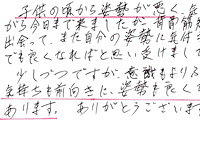 子供の頃から姿勢が悪く、年
がら今日まで来ましたが、背骨
出会って、また自分の姿勢に気付
でも良くなればと思い受けまし
少しづつですが、意識もより
気持ちも前向きに、姿勢を良くて
あります。 ありがとうございま